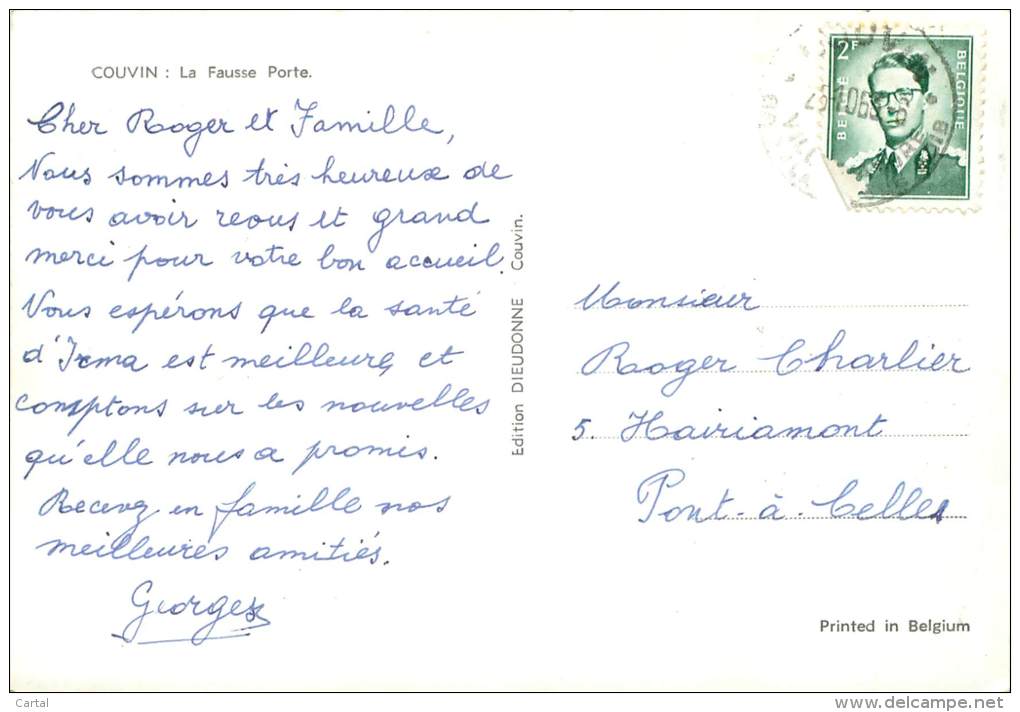 COUVIN : La Fausse Porte.
Cher Roger et Famille,
Nous sommes très heureux de
vous avoir reous et grand
merci pour votre bon accueil.
Nous espérons que la santé
d'Irma est meilleure, et
comptons sur les nouvelles
qu'elle nous a promis.
Recevez en famille nos
meilleures amitiés.
Georges
Edition DIEUDONNE Couvin.
2F
BELGIË BELGIQUE
Monsieur
Roger Charlier
5. Hairiamont
Pont-à-Celles
Printed in Belgium
Cartal
www.delcampe.net